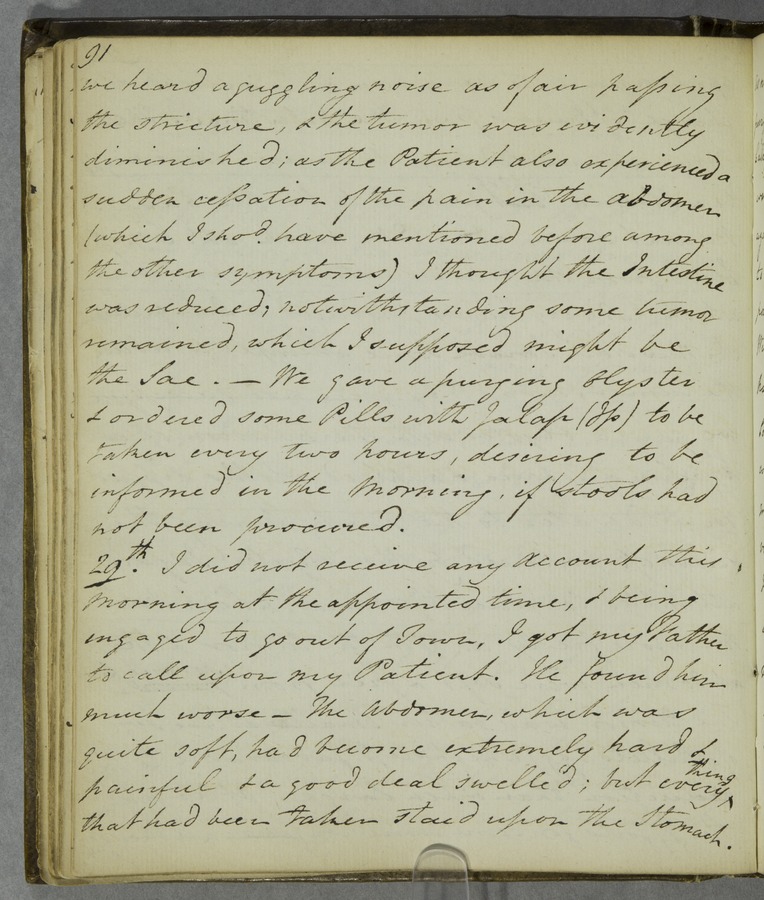 91
we heard a guggling noise as of air passing
the stricture, & the tumor was evidently
diminished; as the Patient also experienced a
sudden cessation of the pain in the abdomen
(which I shod. have mentioned before among
the other symptoms) I thought the Intestine
was reduced; notwithstanding some tumor
remained, which I supposed might be
the Sac. — We gave a purging Clyster
& ordered some Pills with Jalap to be
taken every two hours, desiring to be
informed in the Morning, if stools had
not been procured.
29th. I did not receive any Account this
Morning at the appointed time, & being
engaged to go out of Town, I got my Father
to call upon my Patient. He found him
much worse – The Abdomen, which was
quite soft, had become extremely hard &
painful & a good deal swelled; but every thing
that had been taken staid upon the Stomach.